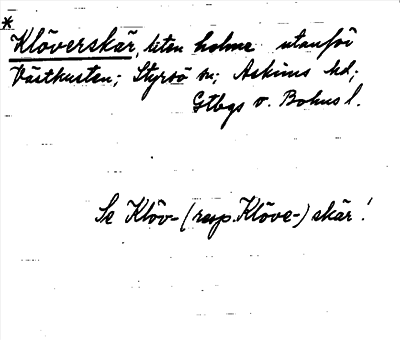 *
Klöverskär, liten holme utanför
Västkusten; Styrsö sn; Askims hd;
Gtbgs o. Bohus l.
Se Klöv- (resp. Klöve-) skär!